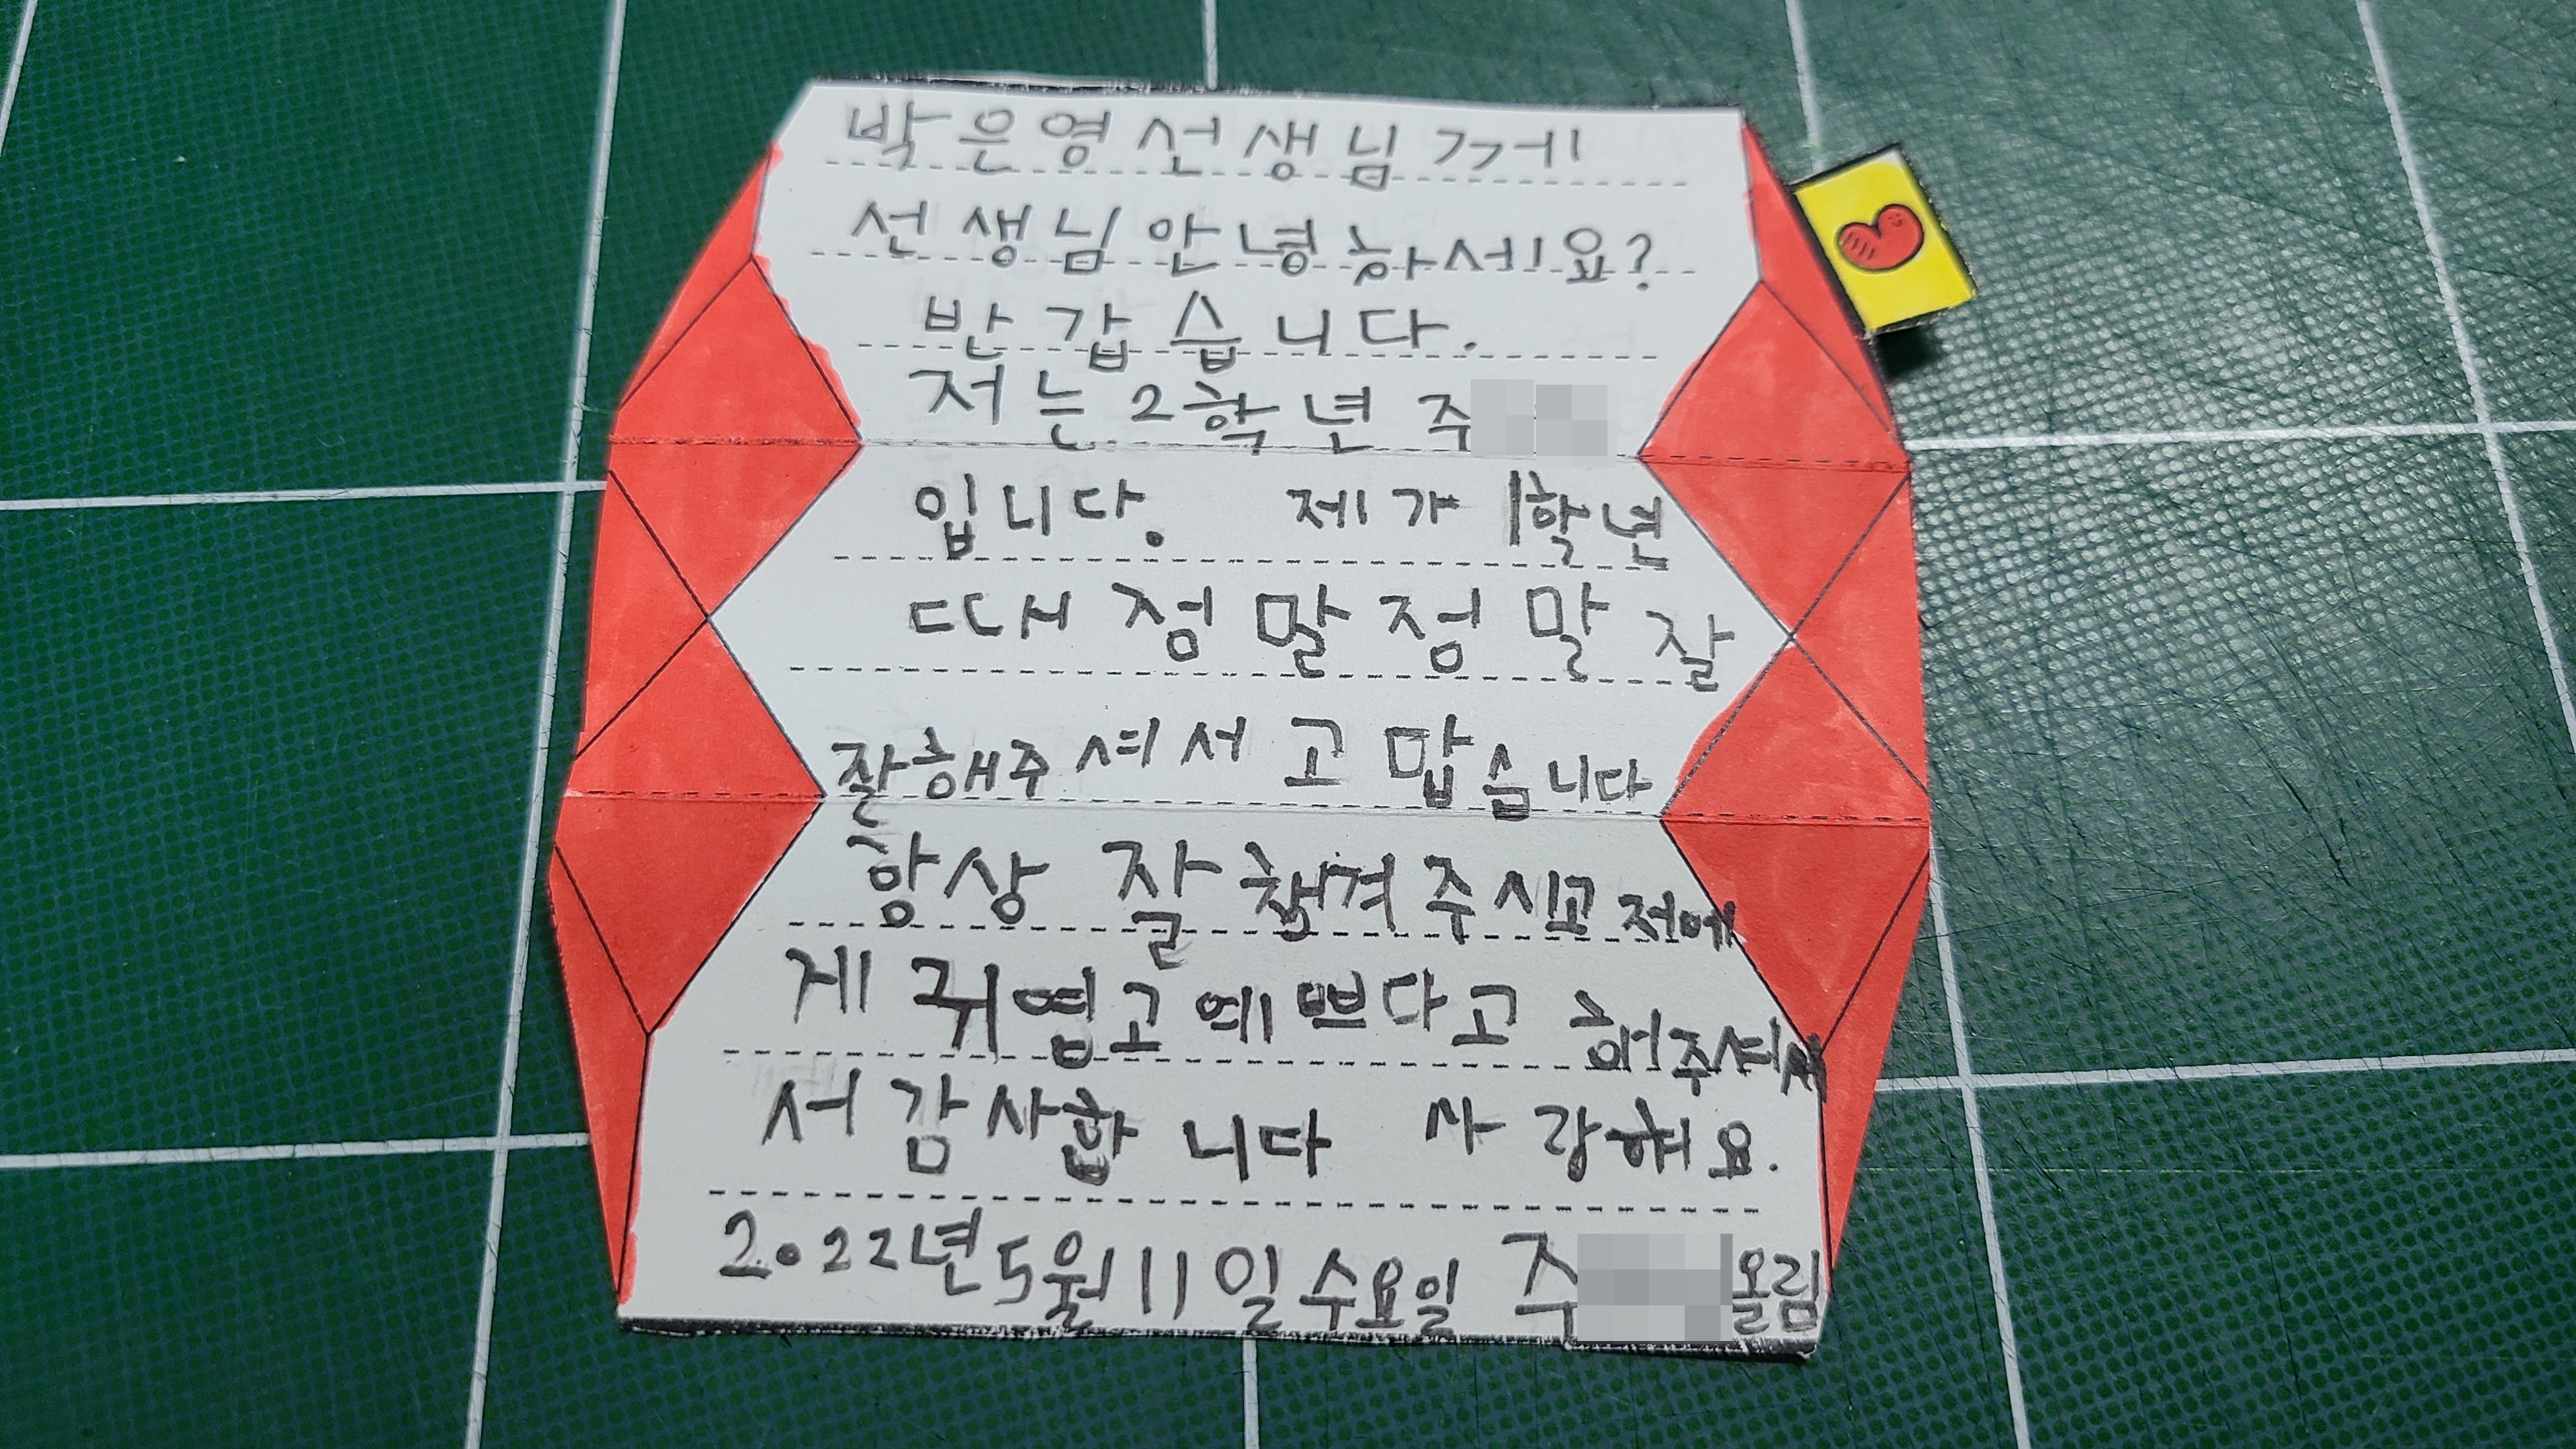 박은영선생님께
선생님안녕하세요?
반갑습니다.
저는2학년 주
입니다. 제가 1학년
때 정말정말 잘
잘해주셔서 고맙습니다
항상 잘 챙겨주시고 저에
게 귀엽고 예쁘다고 해주셔서
서 감사합니다 사랑해요.
2022년 5월 11일 수요일 주 올림